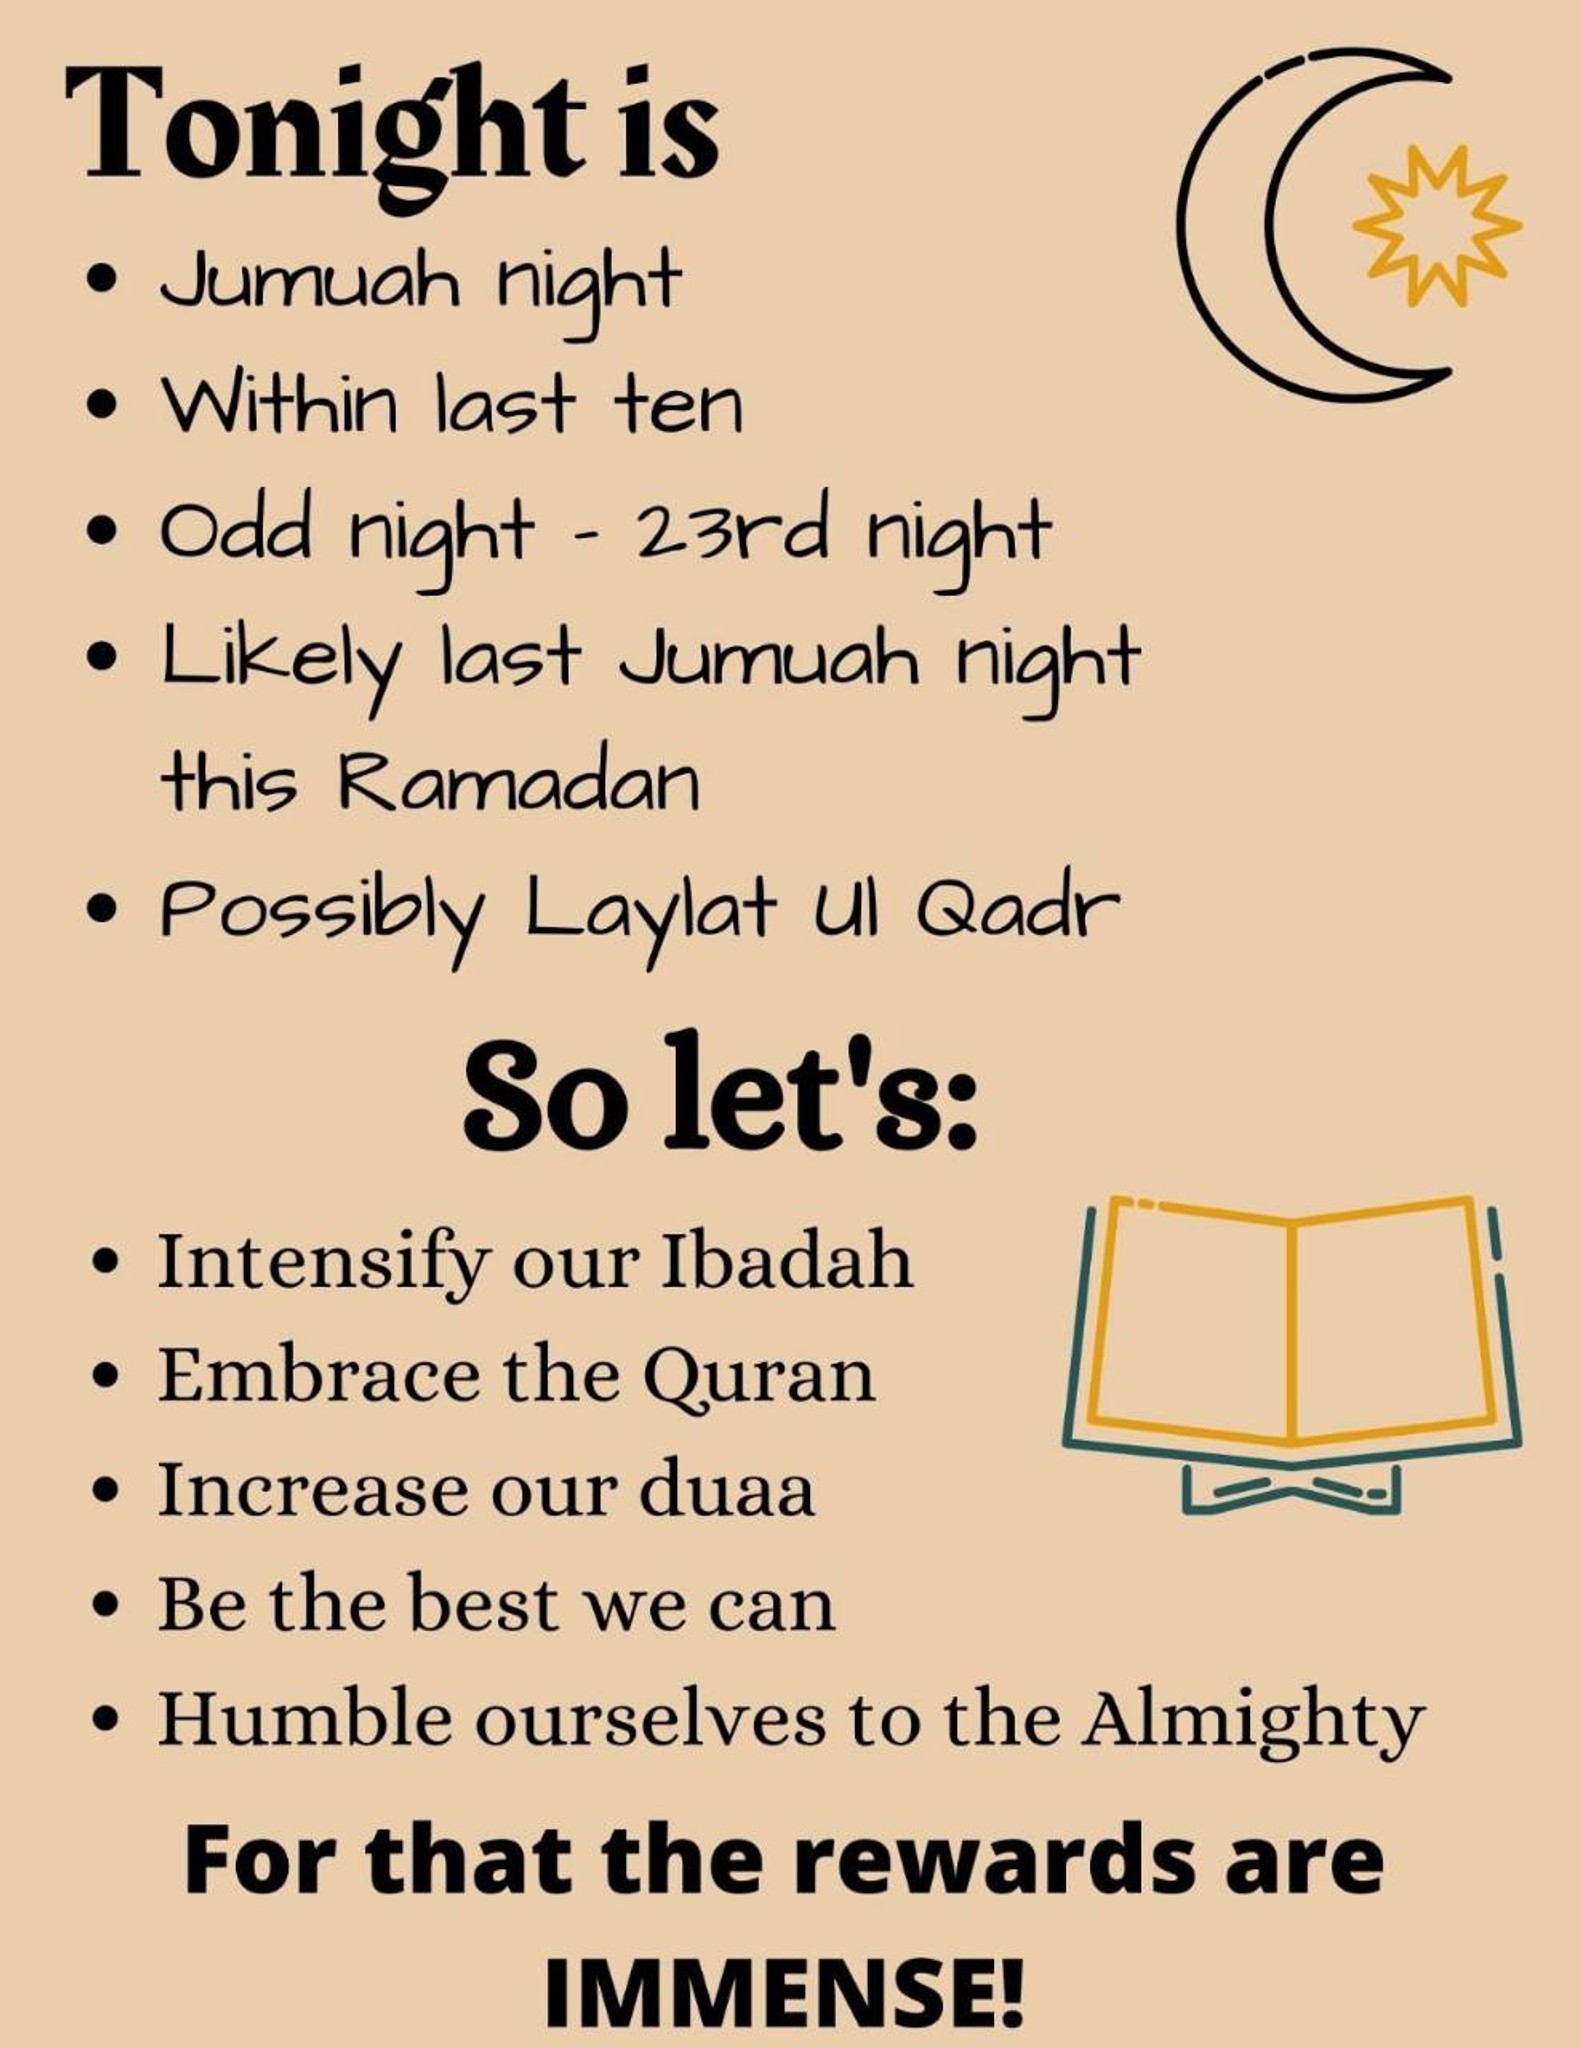 Tonight is
• Jumuah night
• Within last ten
• Odd night - 23rd night
• Likely last Jumuah night
this Ramadan
• Possibly Laylat Ul Qadr
So let's:
• Intensify our Ibadah
• Embrace the Quran
• Increase our duaa
• Be the best we can
• Humble ourselves to the Almighty
For that the rewards are
IMMENSE!